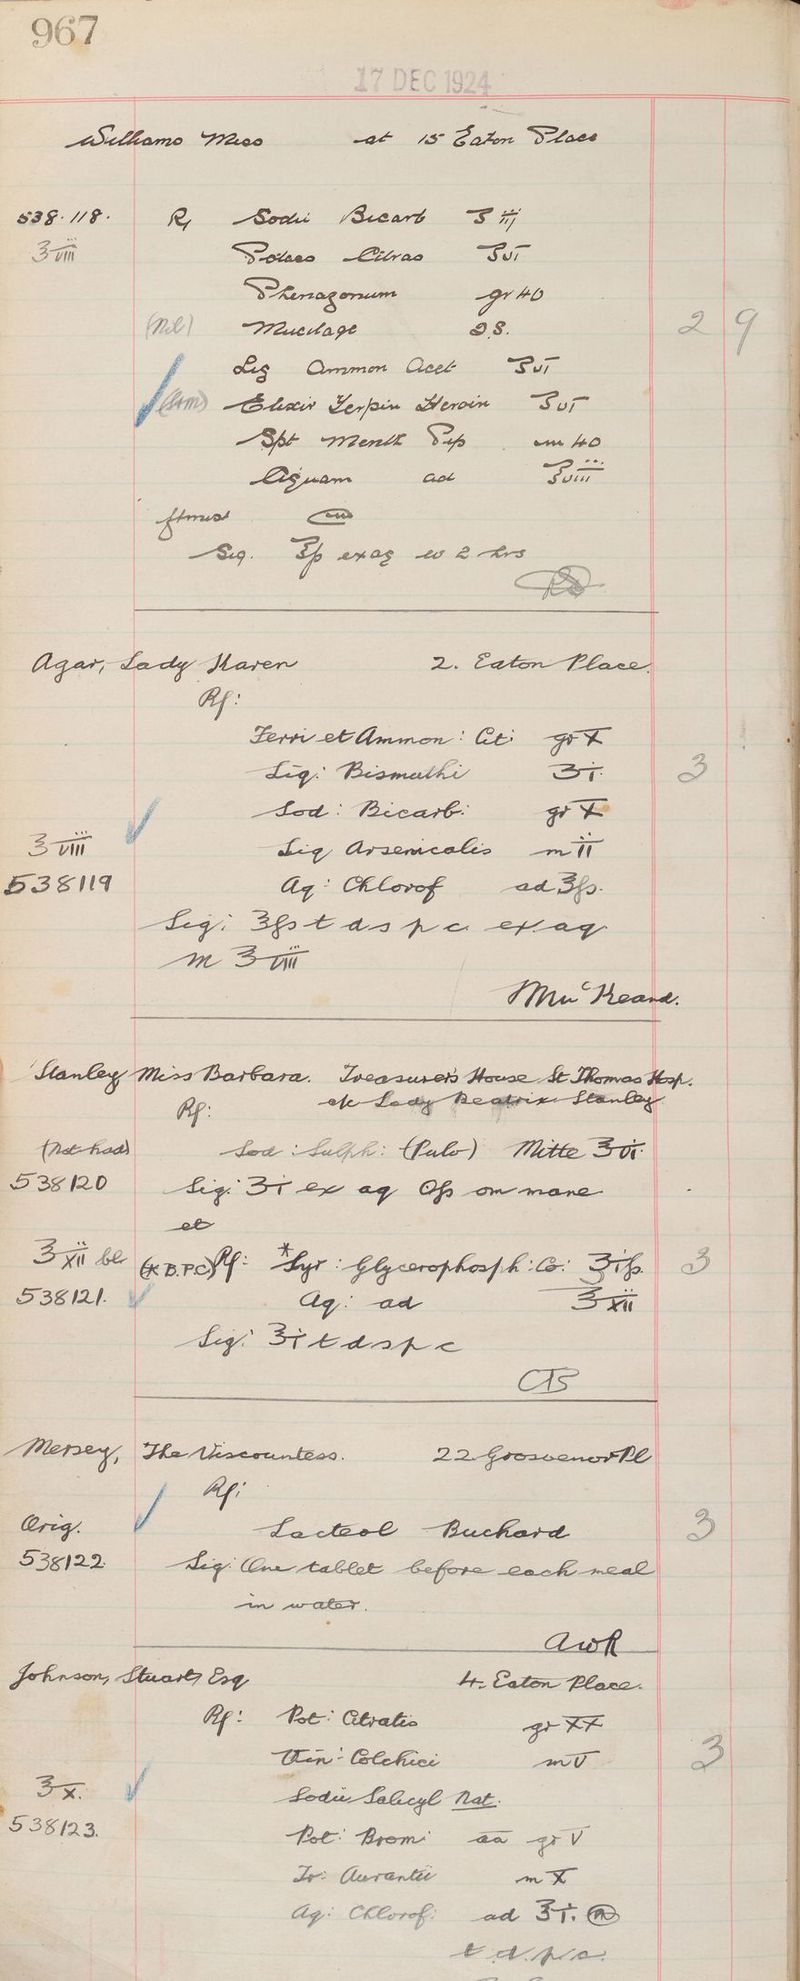 967
17 DEC 1924
Williams Miss at 15 Eaton Place
538.118. R, Sodii Bicarb ʒ iij
ʒviii Potass Citras ʒvi
Phenazonum gr 40
(Nil) Mucilage Q.S. 2 9
Liq Ammon Acet ʒvi
Elixir Terpin Heroin ʒvi
Spt Menth Pip m 40
Aquam ad ℥viii
ft mist
Sig. ex aq 2 hrs
Agar, Lady Karen 2. Eaton Place.
Rf:
Ferri et Ammon: Cit: gr X
Liq: Bismuthi ʒi. 3
Sod: Bicarb: gr X
℥viii Liq Arsenicalis m ii
538119 Aq: Chlorof ad ℥ſs.
Sig: ℥ſs t d s p c. ex. aq.
m ℥viii
Stanley Miss Barbara. Treasurer's House St Thomas Hosp.
Rf: c/o Lady Beatrix Stanley
(Not had) Sod: Sulph: (Pulv) Mitte ℥vi.
538120 Sig: ʒi ex aq Oſs om mane
et
℥xii (* B.P.C) Rf: *Syr: Glycerophosph: Co: ℥iſs. 3
538121. Aq: ad ℥xii
Sig: ʒi t d s p c
CTB
Mersey, The Viscountess. 22 Grosvenor Pl
Rf:
Orig. Lacteol Buchard 3
538122. Sig: One tablet before each meal
in water.
AWR
Johnson, Stuart, Esq 4. Eaton Place.
Rf: Pot: Citratis gr XX
Vin: Colchici m V 3
℥x. Sodii Salicyl Nat.
538123. Pot: Brom: aa gr V
Tr: Aurantii m X
Aq: Chlorof: ad ℥i. m
t. d. p. c.